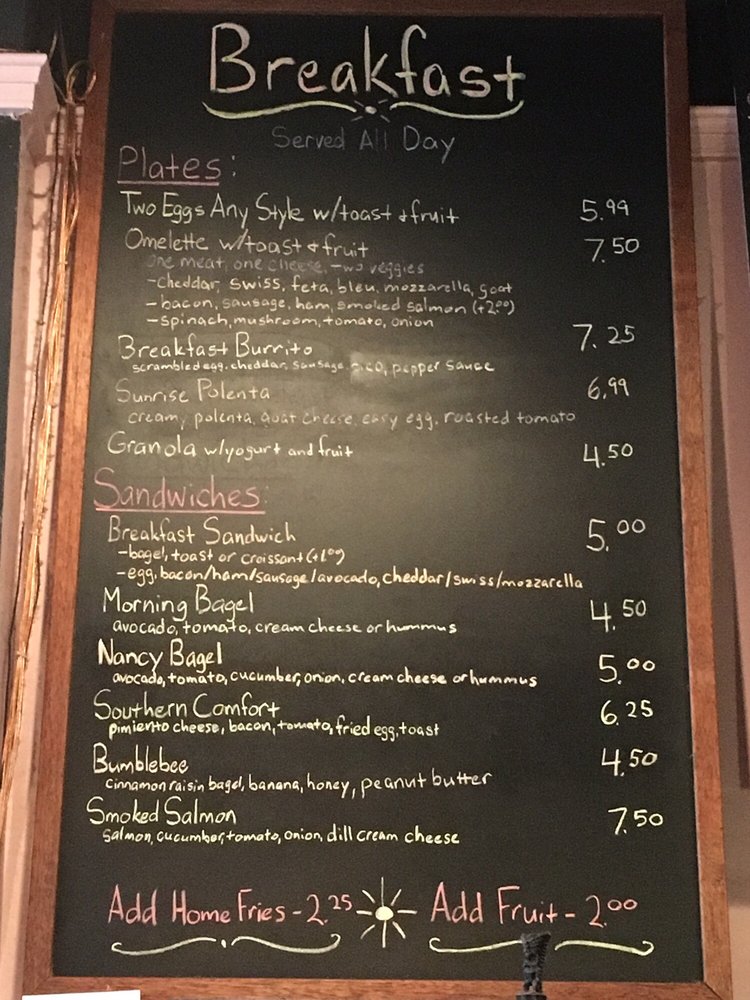 Breakfast
Served All Day
Plates:
Two Eggs Any Style w/toast + fruit 5.99
Omelette w/toast + fruit 7.50
one meat, one cheese, two veggies
-cheddar, swiss, feta, bleu, mozzarella, goat
-bacon, sausage, ham, smoked salmon (+2.00)
-spinach, mushroom, tomato, onion
Breakfast Burrito 7.25
scrambled egg, cheddar, sausage, pico, pepper sauce
Sunrise Polenta 6.99
creamy polenta, goat cheese, easy egg, roasted tomato
Granola w/yogurt and fruit 4.50
Sandwiches:
Breakfast Sandwich 5.00
-bagel, toast or croissant (+1.00)
-egg, bacon/ham/sausage/avocado, cheddar/swiss/mozzarella
Morning Bagel 4.50
avocado, tomato, cream cheese or hummus
Nancy Bagel 5.00
avocado, tomato, cucumber, onion, cream cheese or hummus
Southern Comfort 6.25
pimiento cheese, bacon, tomato, fried egg, toast
Bumblebee 4.50
cinnamon raisin bagel, banana, honey, peanut butter
Smoked Salmon 7.50
salmon, cucumber, tomato, onion, dill cream cheese
Add Home Fries - 2.25 Add Fruit - 2.00